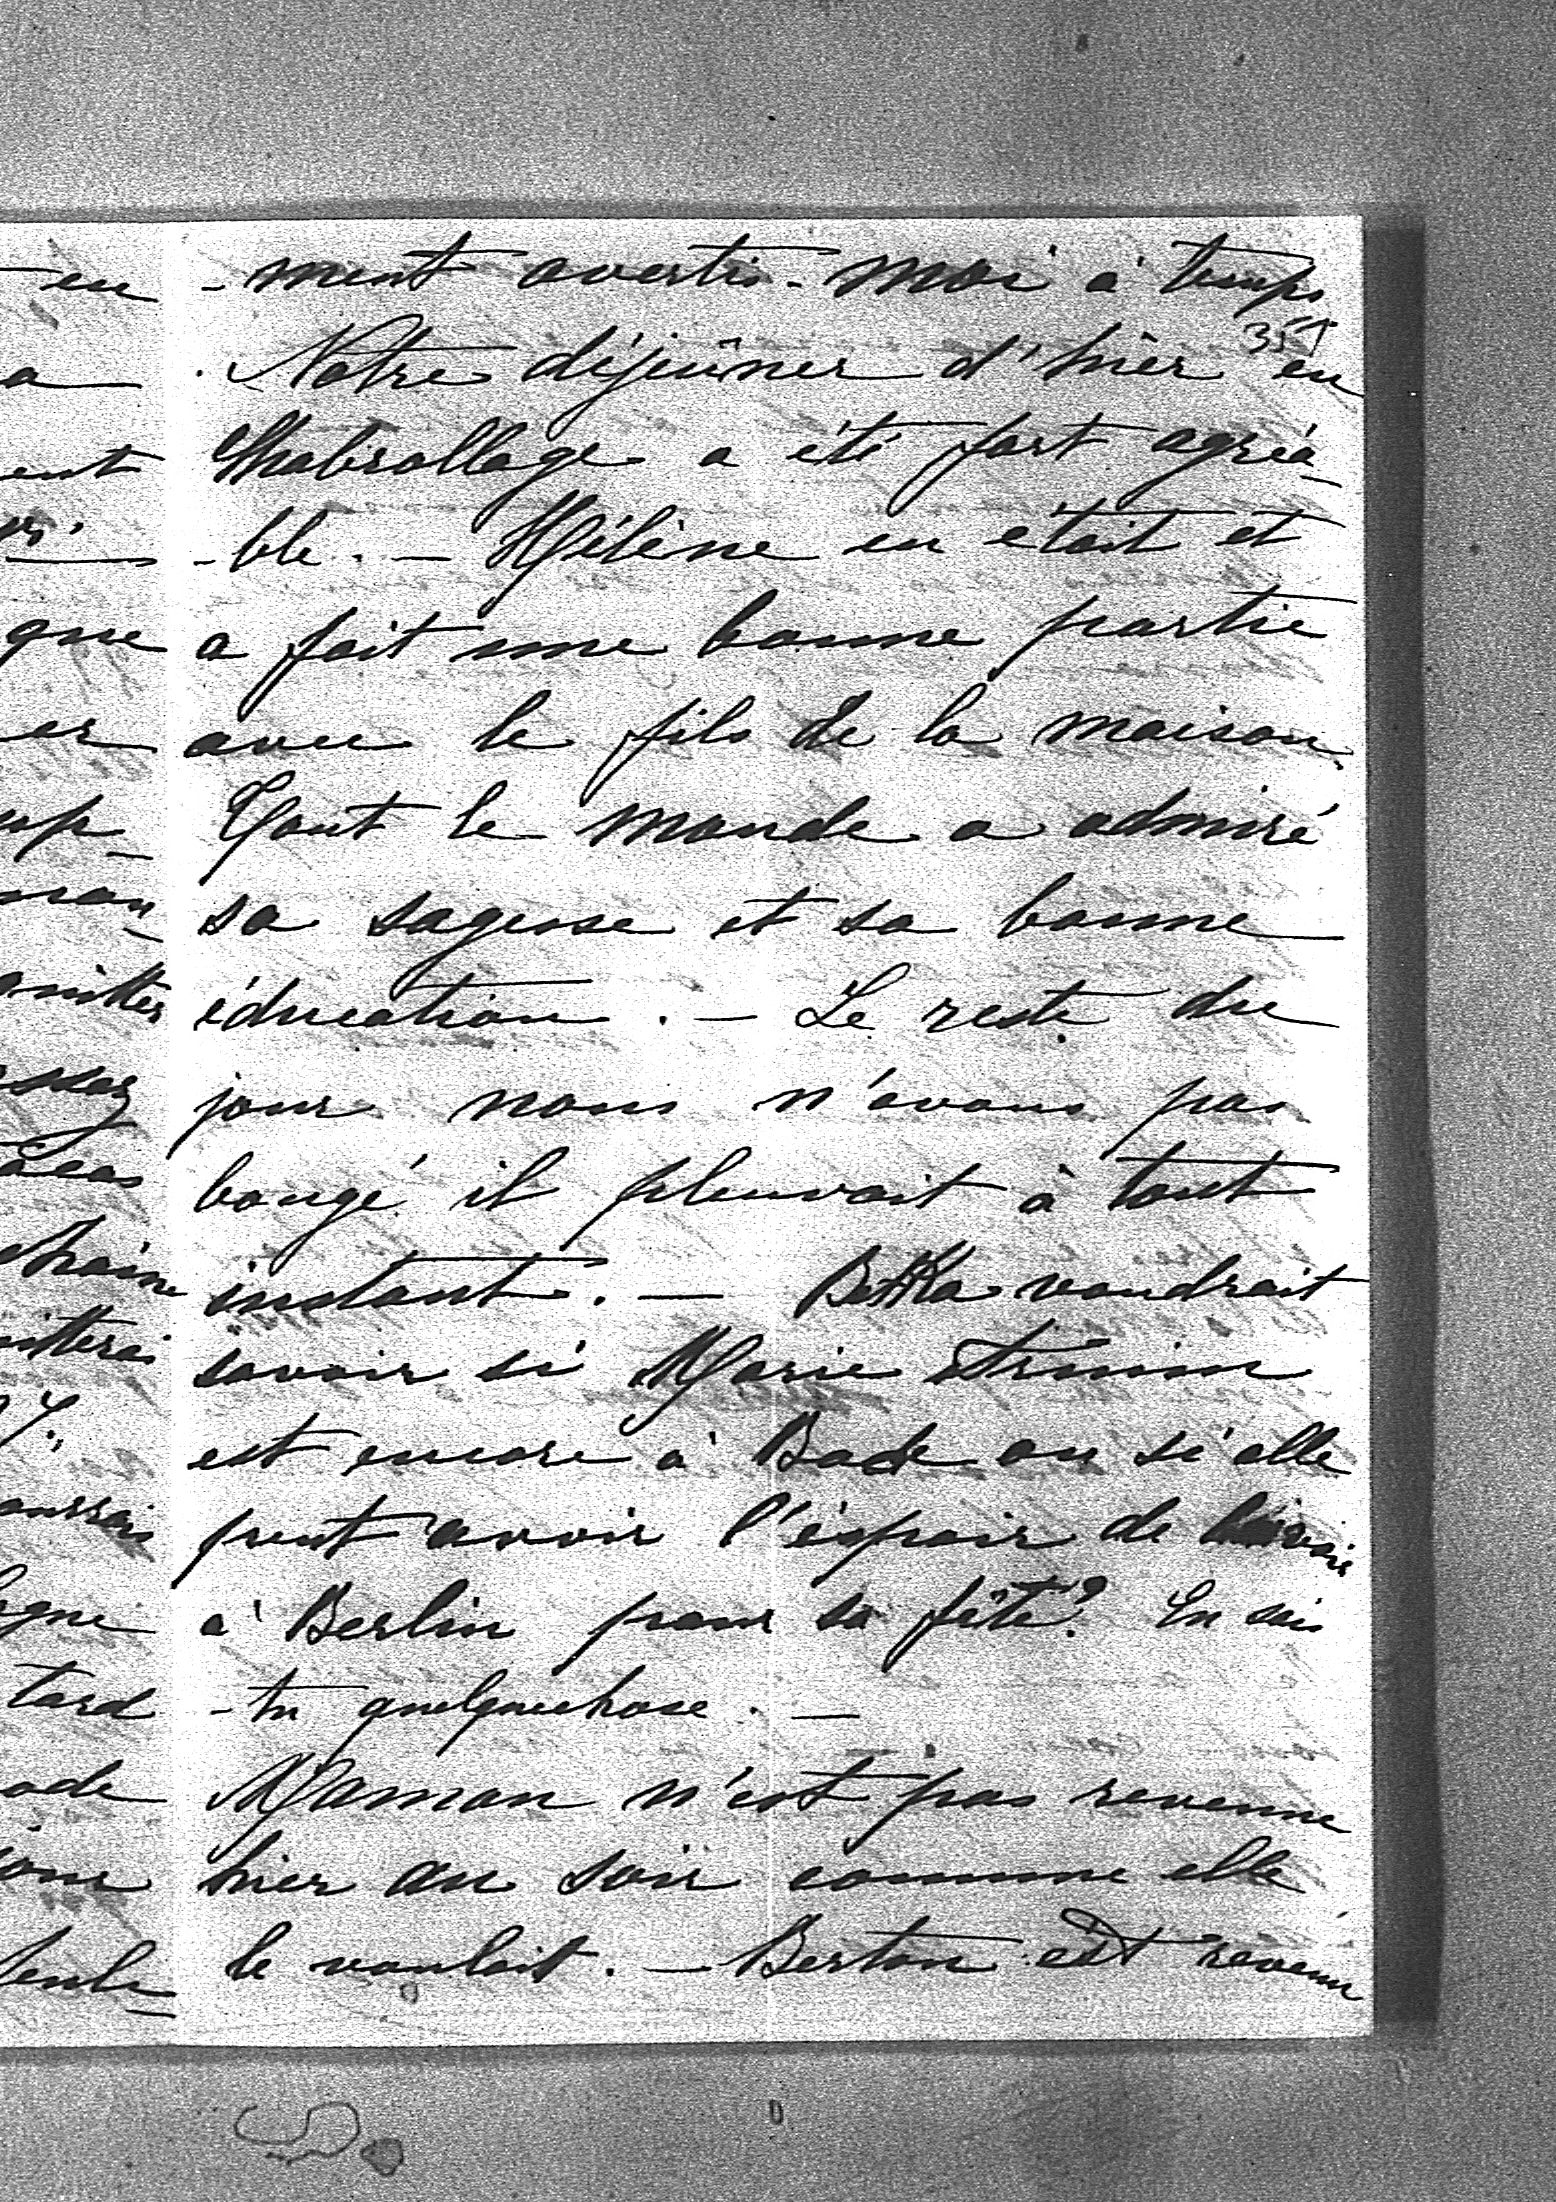 -ment avertis-moi à temps
351
. Notre déjeûner d'hier en
a été fort agréa-
-ble. — Hélène en était et
a fait une bonne partie
avec le fils de la maison.
Tout le monde a admiré
sa sagesse et sa bonne
éducation. — Le reste du
jour nous n'avons pas
bougé il pleuvait à tout
instant. — Bekka voudrait
savoir si Marie
est encore à Bade ou si elle
peut avoir l'éspoir de
à Berlin pour sa fête? En sais
-tu quelquechose. —
Maman n'est pas revenue
hier au soir comme elle
le voulait. — Berton est revenu
en
a
ent
que
er
up-
man-
assez
tard